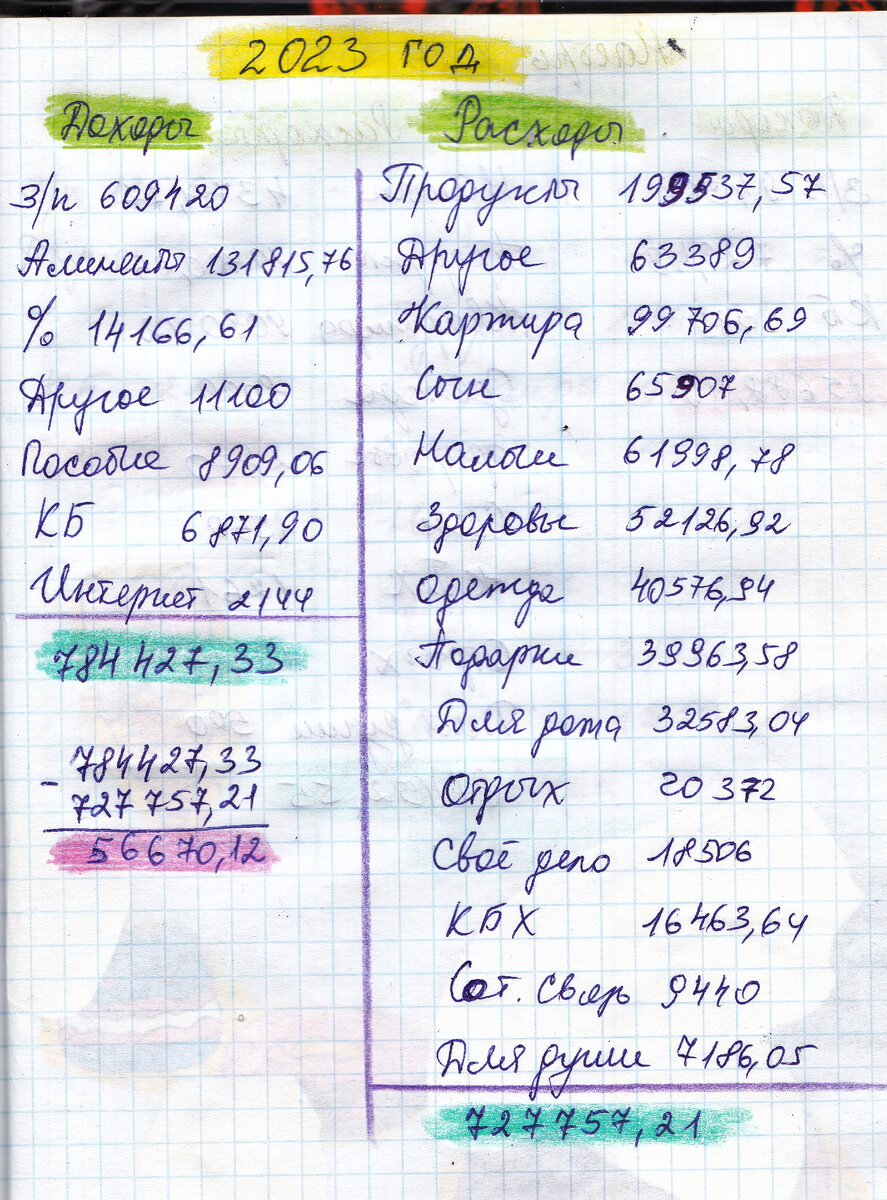 2023 год
Доходы
З/п 609420
Алименты 131815,76
% 14166,61
Другое 11100
Пособие 8909,06
КБ 6871,90
Интернет 2144
784427,33
- 784427,33
727757,21
56670,12
Расходы
Продукты 199537,57
Другое 63389
Квартира 99706,69
Сын 65907
Налоги 61998,78
Здоровье 52126,92
Одежда 40576,94
Подарки 39963,58
Для дома 32583,04
Отдых 20372
Своё дело 18506
КБХ 16463,64
Сот. связь 9440
Для души 7186,05
727757,21